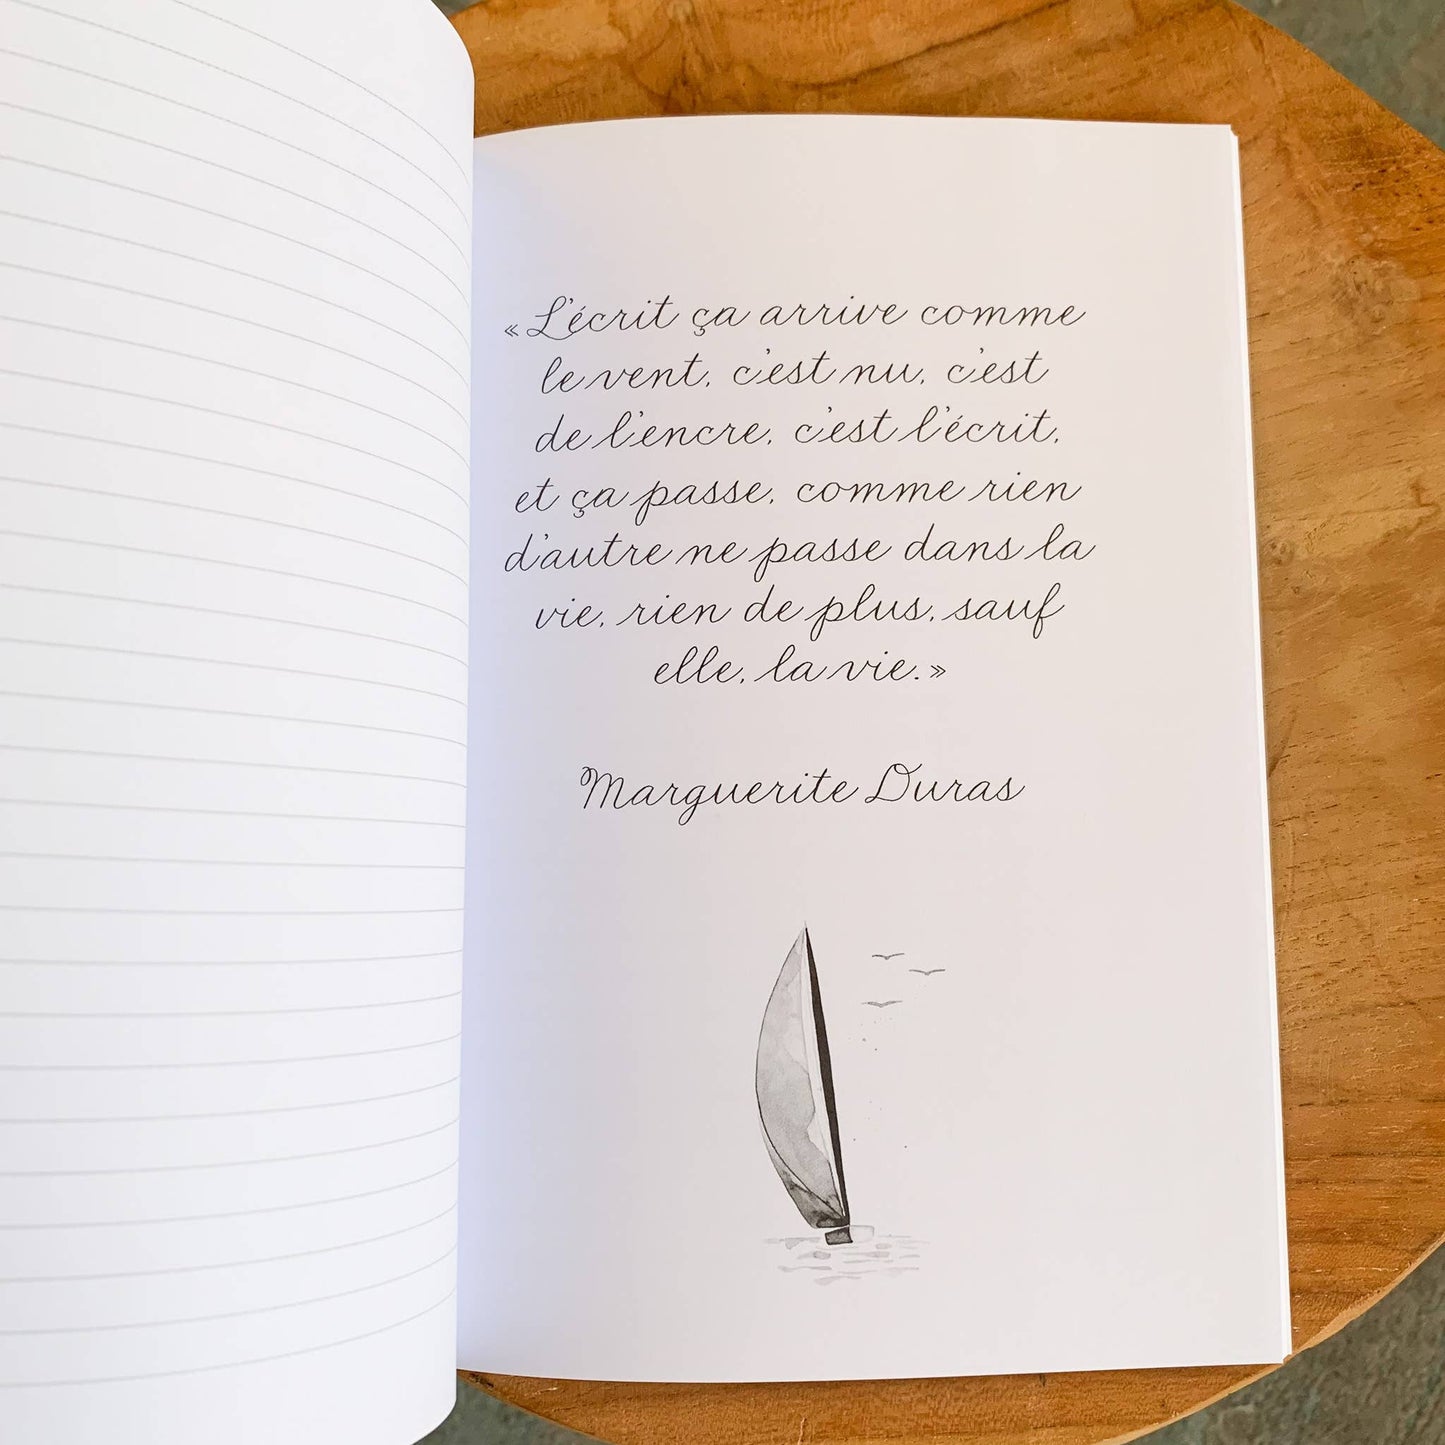 « L'écrit ça arrive comme
le vent, c'est nu, c'est
de l'encre, c'est l'écrit,
et ça passe, comme rien
d'autre ne passe dans la
vie, rien de plus, sauf
elle, la vie. »
Marguerite Duras